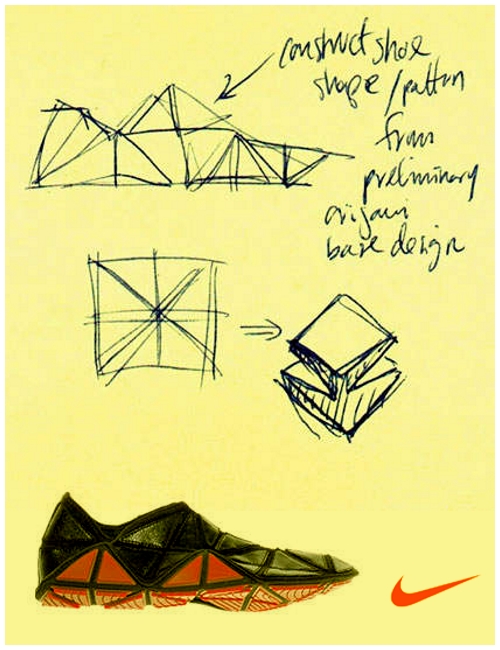 construct shoe
shape / pattern
from
preliminary
origami
base design